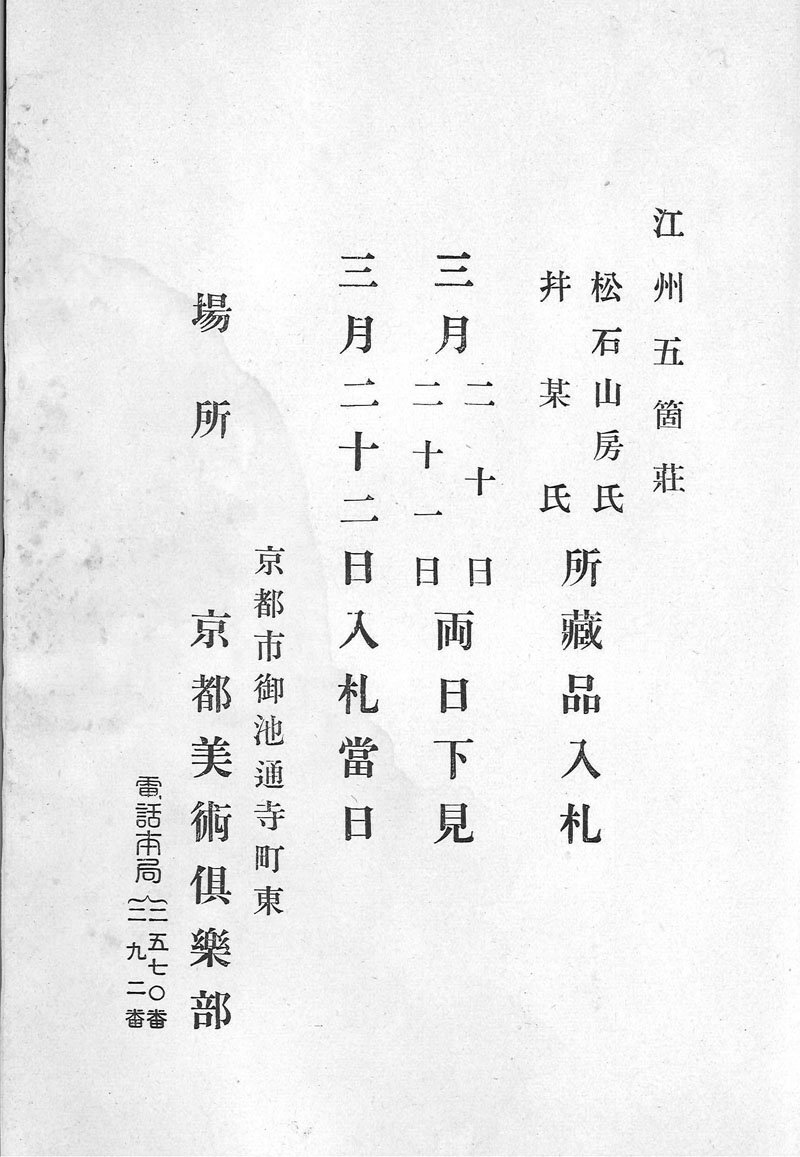 江州五箇莊
松石山房氏
幷某氏
所藏品入札
三月二十日
二十一日
両日下見
三月二十二日入札當日
京都市御池通寺町東
場所 京都美術倶樂部
電話本局
五七〇番
九二番